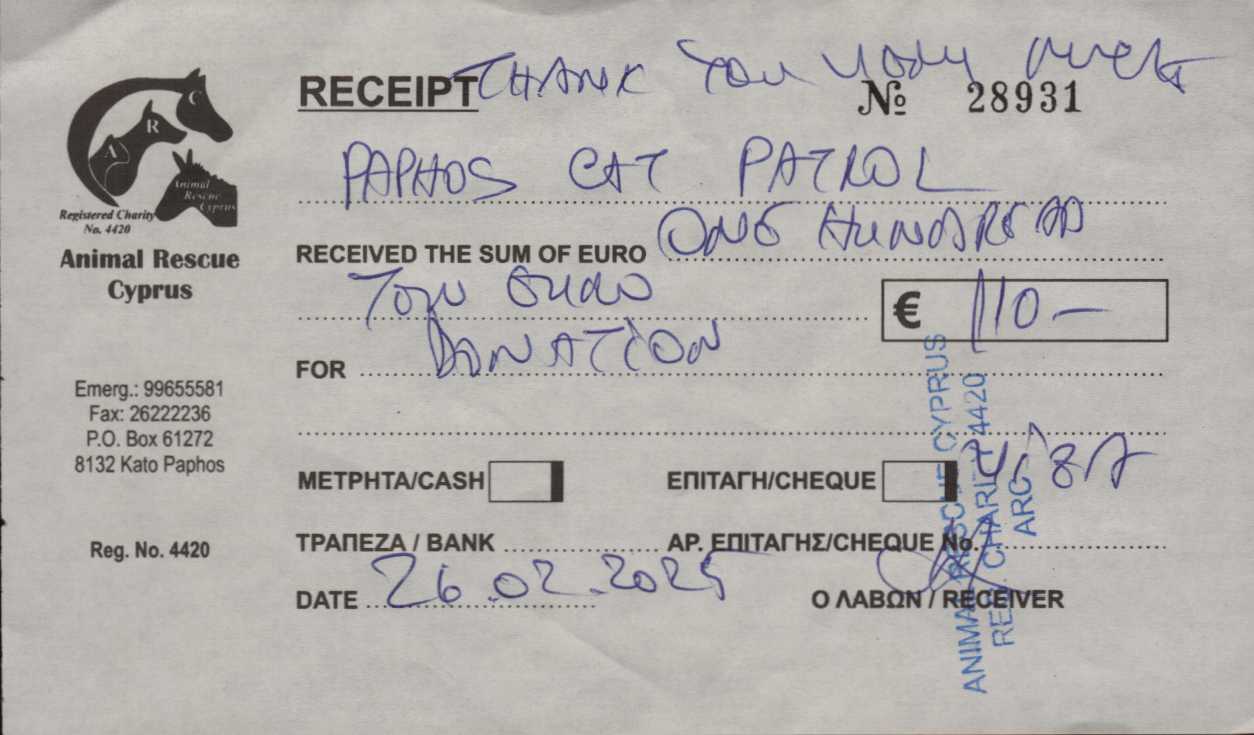 THANK You very much
RECEIPT
№ 28931
C
R
A
Animal
Rescue
Cyprus
Registered Charity
No. 4420
Animal Rescue
Cyprus
PAPHOS CAT PATROL
RECEIVED THE SUM OF EURO ONE HUNDREAD
TEN EURO
€ 110 —
FOR DONATION
Emerg.: 99655581
Fax: 26222236
P.O. Box 61272
8132 Kato Paphos
ΜΕΤΡΗΤΑ/CASH
ΕΠΙΤΑΓΗ/CHEQUE
Reg. No. 4420
ΤΡΑΠΕΖΑ / BANK
ΑΡ. ΕΠΙΤΑΓΗΣ/CHEQUE No.
DATE 26.02.2025
Ο ΛΑΒΩΝ / RECEIVER
ANIMAL RESCUE CYPRUS
REG. CHARITY 4420
ARC